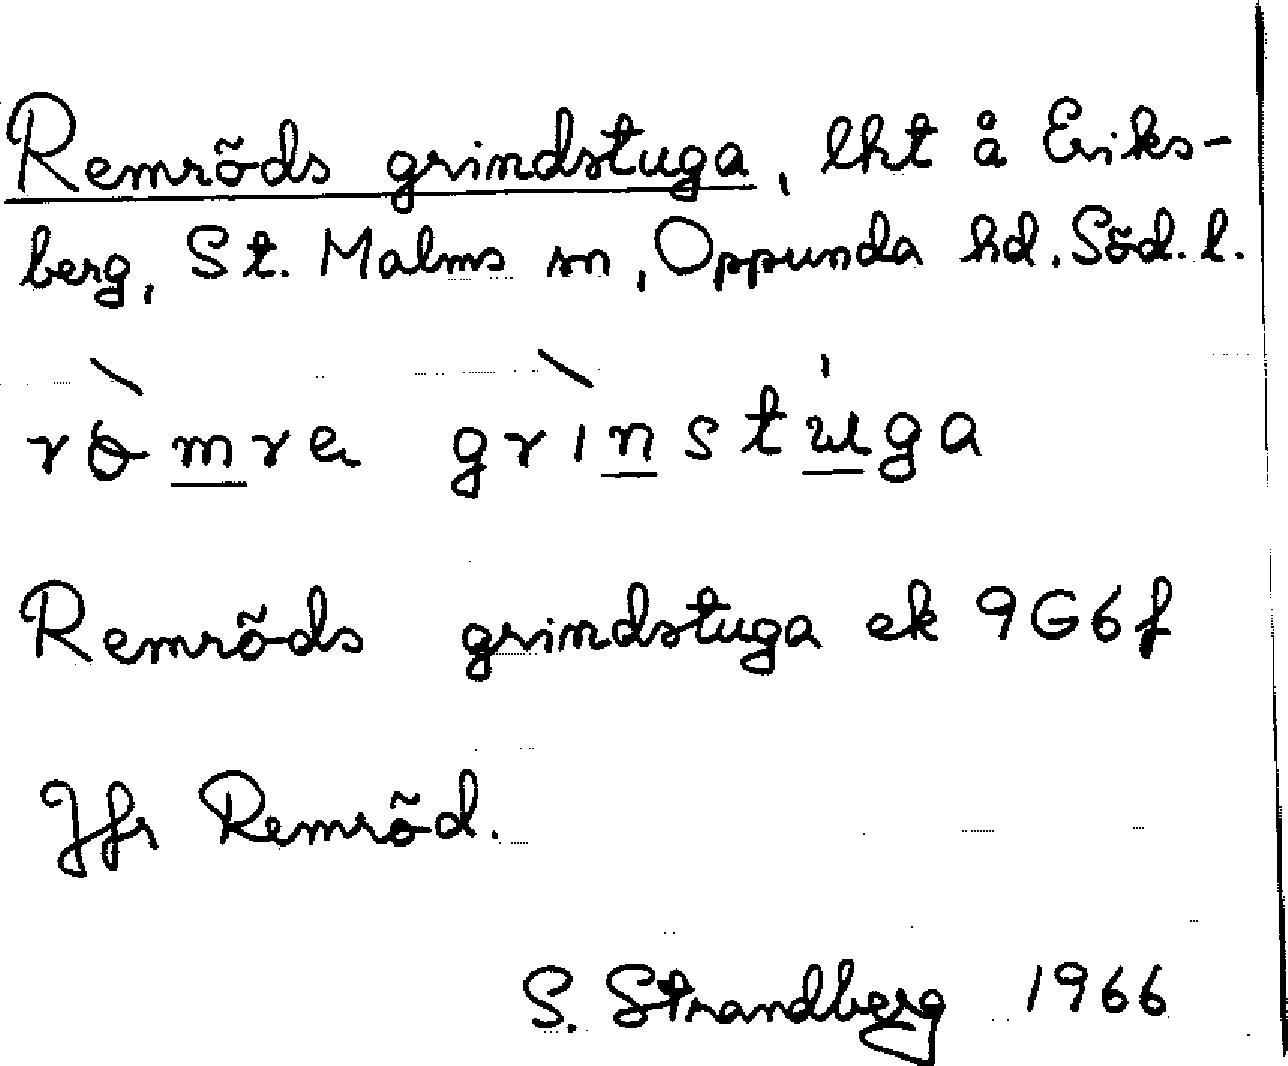 Remröds grindstuga, lht å Eriks-
berg, St. Malms sn, Oppunda hd. Söd. l.
grìnstu̍ga
Remröds grindstuga ek 9G6f
Jfr Remröd.
S. Strandberg 1966